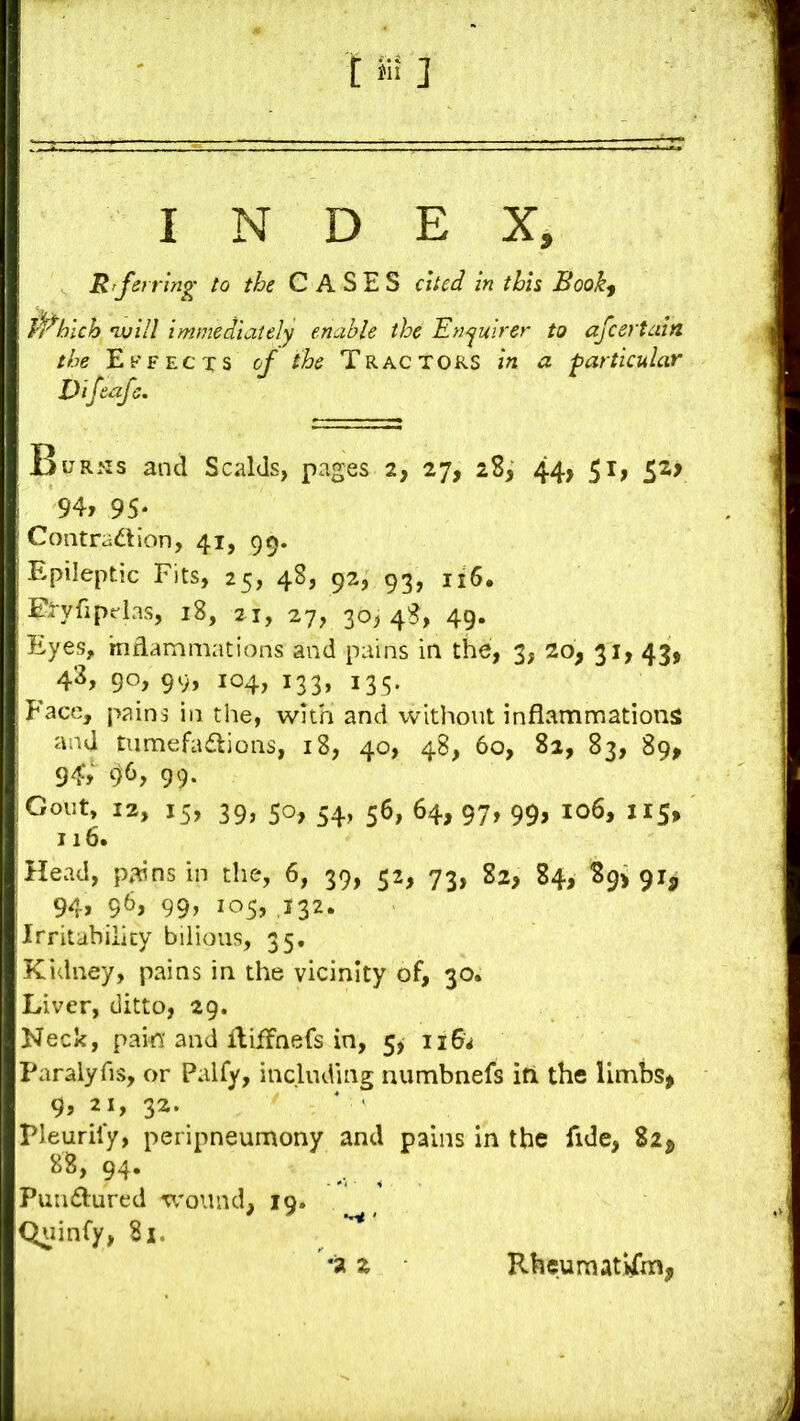 [ iii ]
INDEX,
Referring to the CASES cited in this Book,
Which will immediately enable the Enquirer to aſcertain
the EFFECTS of the TRACTORS in a particular
Diſeaſe.
BURNS and Scalds, pages 2, 27, 28, 44, 51, 52,
94, 95.
Contraction, 41, 99.
Epileptic Fits, 25, 48, 92, 93, 116.
Eryſipelas, 18, 21, 27, 30, 48, 49.
Eyes, inflammations and pains in the, 3, 20, 31, 43,
48, 90, 99, 104, 133, 135.
Face, pains in the, with and without inflammations
and tumefactions, 18, 40, 48, 60, 82, 83, 89,
94, 96, 99.
Gout, 12, 15, 39, 50, 54, 56, 64, 97, 99, 106, 115,
116.
Head, pains in the, 6, 39, 52, 73, 82, 84, 89, 91,
94, 96, 99, 105, 132.
Irritability bilious, 35.
Kidney, pains in the vicinity of, 30.
Liver, ditto, 29.
Neck, pain and ſtiffneſs in, 5, 116.
Paralyſis, or Palſy, including numbneſs in the limbs,
9, 21, 32.
Pleuriſy, peripneumony and pains in the ſide, 82,
88, 94.
Punctured wound, 19.
Quinſy, 81.
a 2 Rheumatiſm,